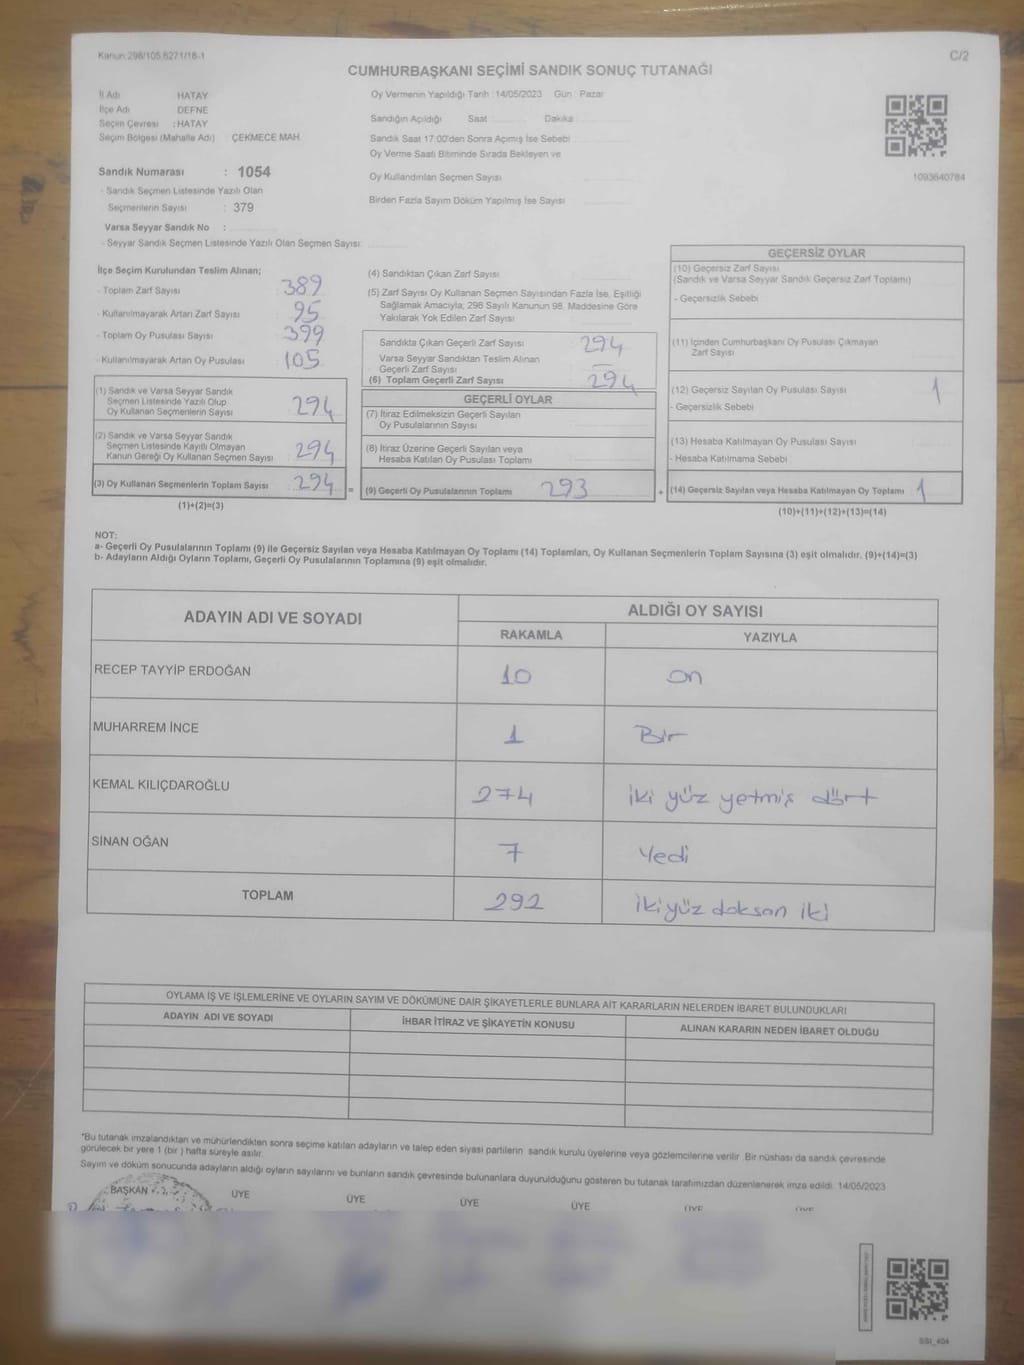 Kanun 298/105,6271/18-1
C/2
CUMHURBAŞKANI SEÇİMİ SANDIK SONUÇ TUTANAĞI
İl Adı HATAY
İlçe Adı DEFNE
Seçim Çevresi : HATAY
Seçim Bölgesi (Mahalle Adı) ÇEKMECE MAH.
Oy Vermenin Yapıldığı Tarih : 14/05/2023 Gün : Pazar
Sandığın Açıldığı Saat Dakika
Sandık Saat 17:00'den Sonra Açımış İse Sebebi
Oy Verme Saati Bitiminde Sırada Bekleyen ve
Oy Kullandırılan Seçmen Sayısı
Birden Fazla Sayım Döküm Yapılmış İse Sayısı
1093640784
Sandık Numarası : 1054
- Sandık Seçmen Listesinde Yazılı Olan
Seçmenlerin Sayısı : 379
Varsa Seyyar Sandık No :
- Seyyar Sandık Seçmen Listesinde Yazılı Olan Seçmen Sayısı:
İlçe Seçim Kurulundan Teslim Alınan;
- Toplam Zarf Sayısı 389
- Kullanılmayarak Artan Zarf Sayısı 95
- Toplam Oy Pusulası Sayısı 399
- Kullanılmayarak Artan Oy Pusulası 105
(1) Sandık ve Varsa Seyyar Sandık
Seçmen Listesinde Yazılı Olup
Oy Kullanan Seçmenlerin Sayısı 294
(2) Sandık ve Varsa Seyyar Sandık
Seçmen Listesinde Kayıtlı Olmayan
Kanun Gereği Oy Kullanan Seçmen Sayısı 294
(3) Oy Kullanan Seçmenlerin Toplam Sayısı 294 =
(1)+(2)=(3)
(4) Sandıktan Çıkan Zarf Sayısı
(5) Zarf Sayısı Oy Kullanan Seçmen Sayısından Fazla İse, Eşitliği
Sağlamak Amacıyla; 298 Sayılı Kanunun 98. Maddesine Göre
Yakılarak Yok Edilen Zarf Sayısı
Sandıkta Çıkan Geçerli Zarf Sayısı 294
Varsa Seyyar Sandıktan Teslim Alınan
Geçerli Zarf Sayısı
(6) Toplam Geçerli Zarf Sayısı 294
GEÇERLİ OYLAR
(7) İtiraz Edilmeksizin Geçerli Sayılan
Oy Pusulalarının Sayısı
(8) İtiraz Üzerine Geçerli Sayılan veya
Hesaba Katılan Oy Pusulası Toplamı
(9) Geçerli Oy Pusulalarının Toplamı 293 +
GEÇERSİZ OYLAR
(10) Geçersiz Zarf Sayısı
(Sandık ve Varsa Seyyar Sandık Geçersiz Zarf Toplamı)
- Geçersizlik Sebebi
(11) İçinden Cumhurbaşkanı Oy Pusulası Çıkmayan
Zarf Sayısı
(12) Geçersiz Sayılan Oy Pusulası Sayısı 1
- Geçersizlik Sebebi
(13) Hesaba Katılmayan Oy Pusulası Sayısı
- Hesaba Katılmama Sebebi
(14) Geçersiz Sayılan veya Hesaba Katılmayan Oy Toplamı 1
(10)+(11)+(12)+(13)=(14)
NOT:
a- Geçerli Oy Pusulalarının Toplamı (9) ile Geçersiz Sayılan veya Hesaba Katılmayan Oy Toplamı (14) Toplamları, Oy Kullanan Seçmenlerin Toplam Sayısına (3) eşit olmalıdır. (9)+(14)=(3)
b- Adayların Aldığı Oyların Toplamı, Geçerli Oy Pusulalarının Toplamına (9) eşit olmalıdır.
ADAYIN ADI VE SOYADI ALDIĞI OY SAYISI
RAKAMLA YAZIYLA
RECEP TAYYİP ERDOĞAN 10 on
MUHARREM İNCE 1 Bir
KEMAL KILIÇDAROĞLU 274 iki yüz yetmiş dört
SİNAN OĞAN 7 Yedi
TOPLAM 292 ikiyüz doksan iki
OYLAMA İŞ VE İŞLEMLERİNE VE OYLARIN SAYIM VE DÖKÜMÜNE DAİR ŞİKAYETLERLE BUNLARA AİT KARARLARIN NELERDEN İBARET BULUNDUKLARI
ADAYIN ADI VE SOYADI İHBAR İTİRAZ VE ŞİKAYETİN KONUSU ALINAN KARARIN NEDEN İBARET OLDUĞU
*Bu tutanak imzalandıktan ve mühürlendikten sonra seçime katılan adayların ve talep eden siyasi partilerin sandık kurulu üyelerine veya gözlemcilerine verilir. Bir nüshası da sandık çevresinde
görülecek bir yere 1 (bir) hafta süreyle asılır.
Sayım ve döküm sonucunda adayların aldığı oyların sayılarını ve bunların sandık çevresinde bulunanlara duyurulduğunu gösteren bu tutanak tarafımızdan düzenlenerek imza edildi. 14/05/2023
BAŞKAN ÜYE ÜYE ÜYE ÜYE ÜYE ÜYE